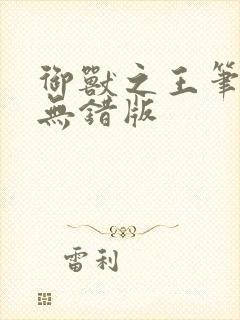 御獸之王筆
無錯版
雷利